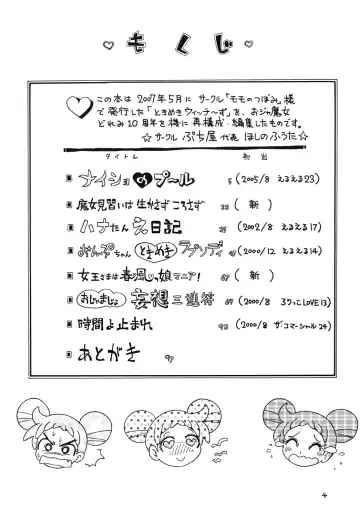 ♡もくじ♡
この本は2007年5月にサークル『モモのつぼみ』様
で発行した「ときめきウィッチ〜ず」を、おジャ魔女
どれみ10周年を機に再構成・編集したものです。
☆サークル ぷち屋 代表 ほしのふうた☆
タイトル 初出
ナイショのプール 5 (2005/8 えるえる23)
魔女見習いは生かさずころさず 23 (新)
ハナたん え日記 (2002/8 えるえる17)
おんぷちゃん ときめき ラプソディ (2000/12 えるえる14)
女王さまは春風っ娘マニア! (新)
おじゃましょ 妄想三連符 69 (2000/8 ろりこLOVE13)
時間よ止まれ 93 (2000/8 ザ・コマーシャル24)
あとがき 97
4